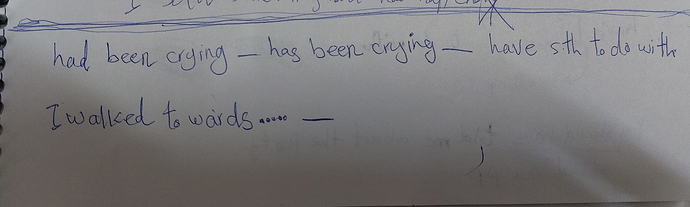 had been crying – has been crying – have sth to do with
I walked to wards..... –